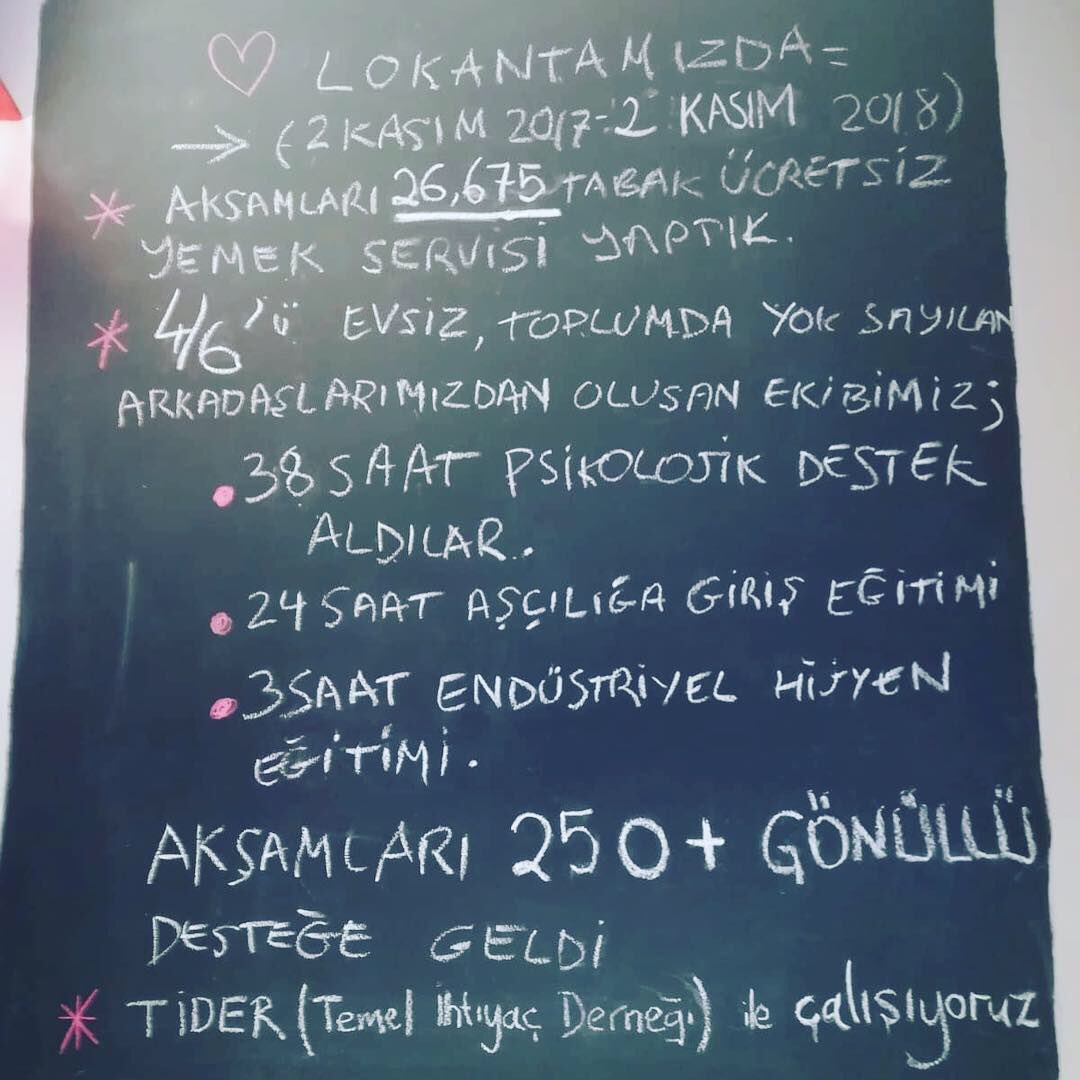 LOKANTAMIZDA=
→ (2 KASIM 2017-2 KASIM 2018)
* AKŞAMLARI 26,675 TABAK ÜCRETSİZ
YEMEK SERVİSİ YAPTIK.
* 4/6'ü EVSİZ, TOPLUMDA YOK SAYILAN
ARKADAŞLARIMIZDAN OLUŞAN EKİBİMİZ;
• 38 SAAT PSİKOLOJİK DESTEK
ALDILAR.
• 24 SAAT AŞÇILIĞA GİRİŞ EĞİTİMİ
• 3 SAAT ENDÜSTRİYEL HİJYEN
EĞİTİMİ.
AKŞAMLARI 250+ GÖNÜLLÜ
DESTEĞE GELDİ
* TİDER (Temel Ihtıyaç Derneğı) ile çalışıyoruz